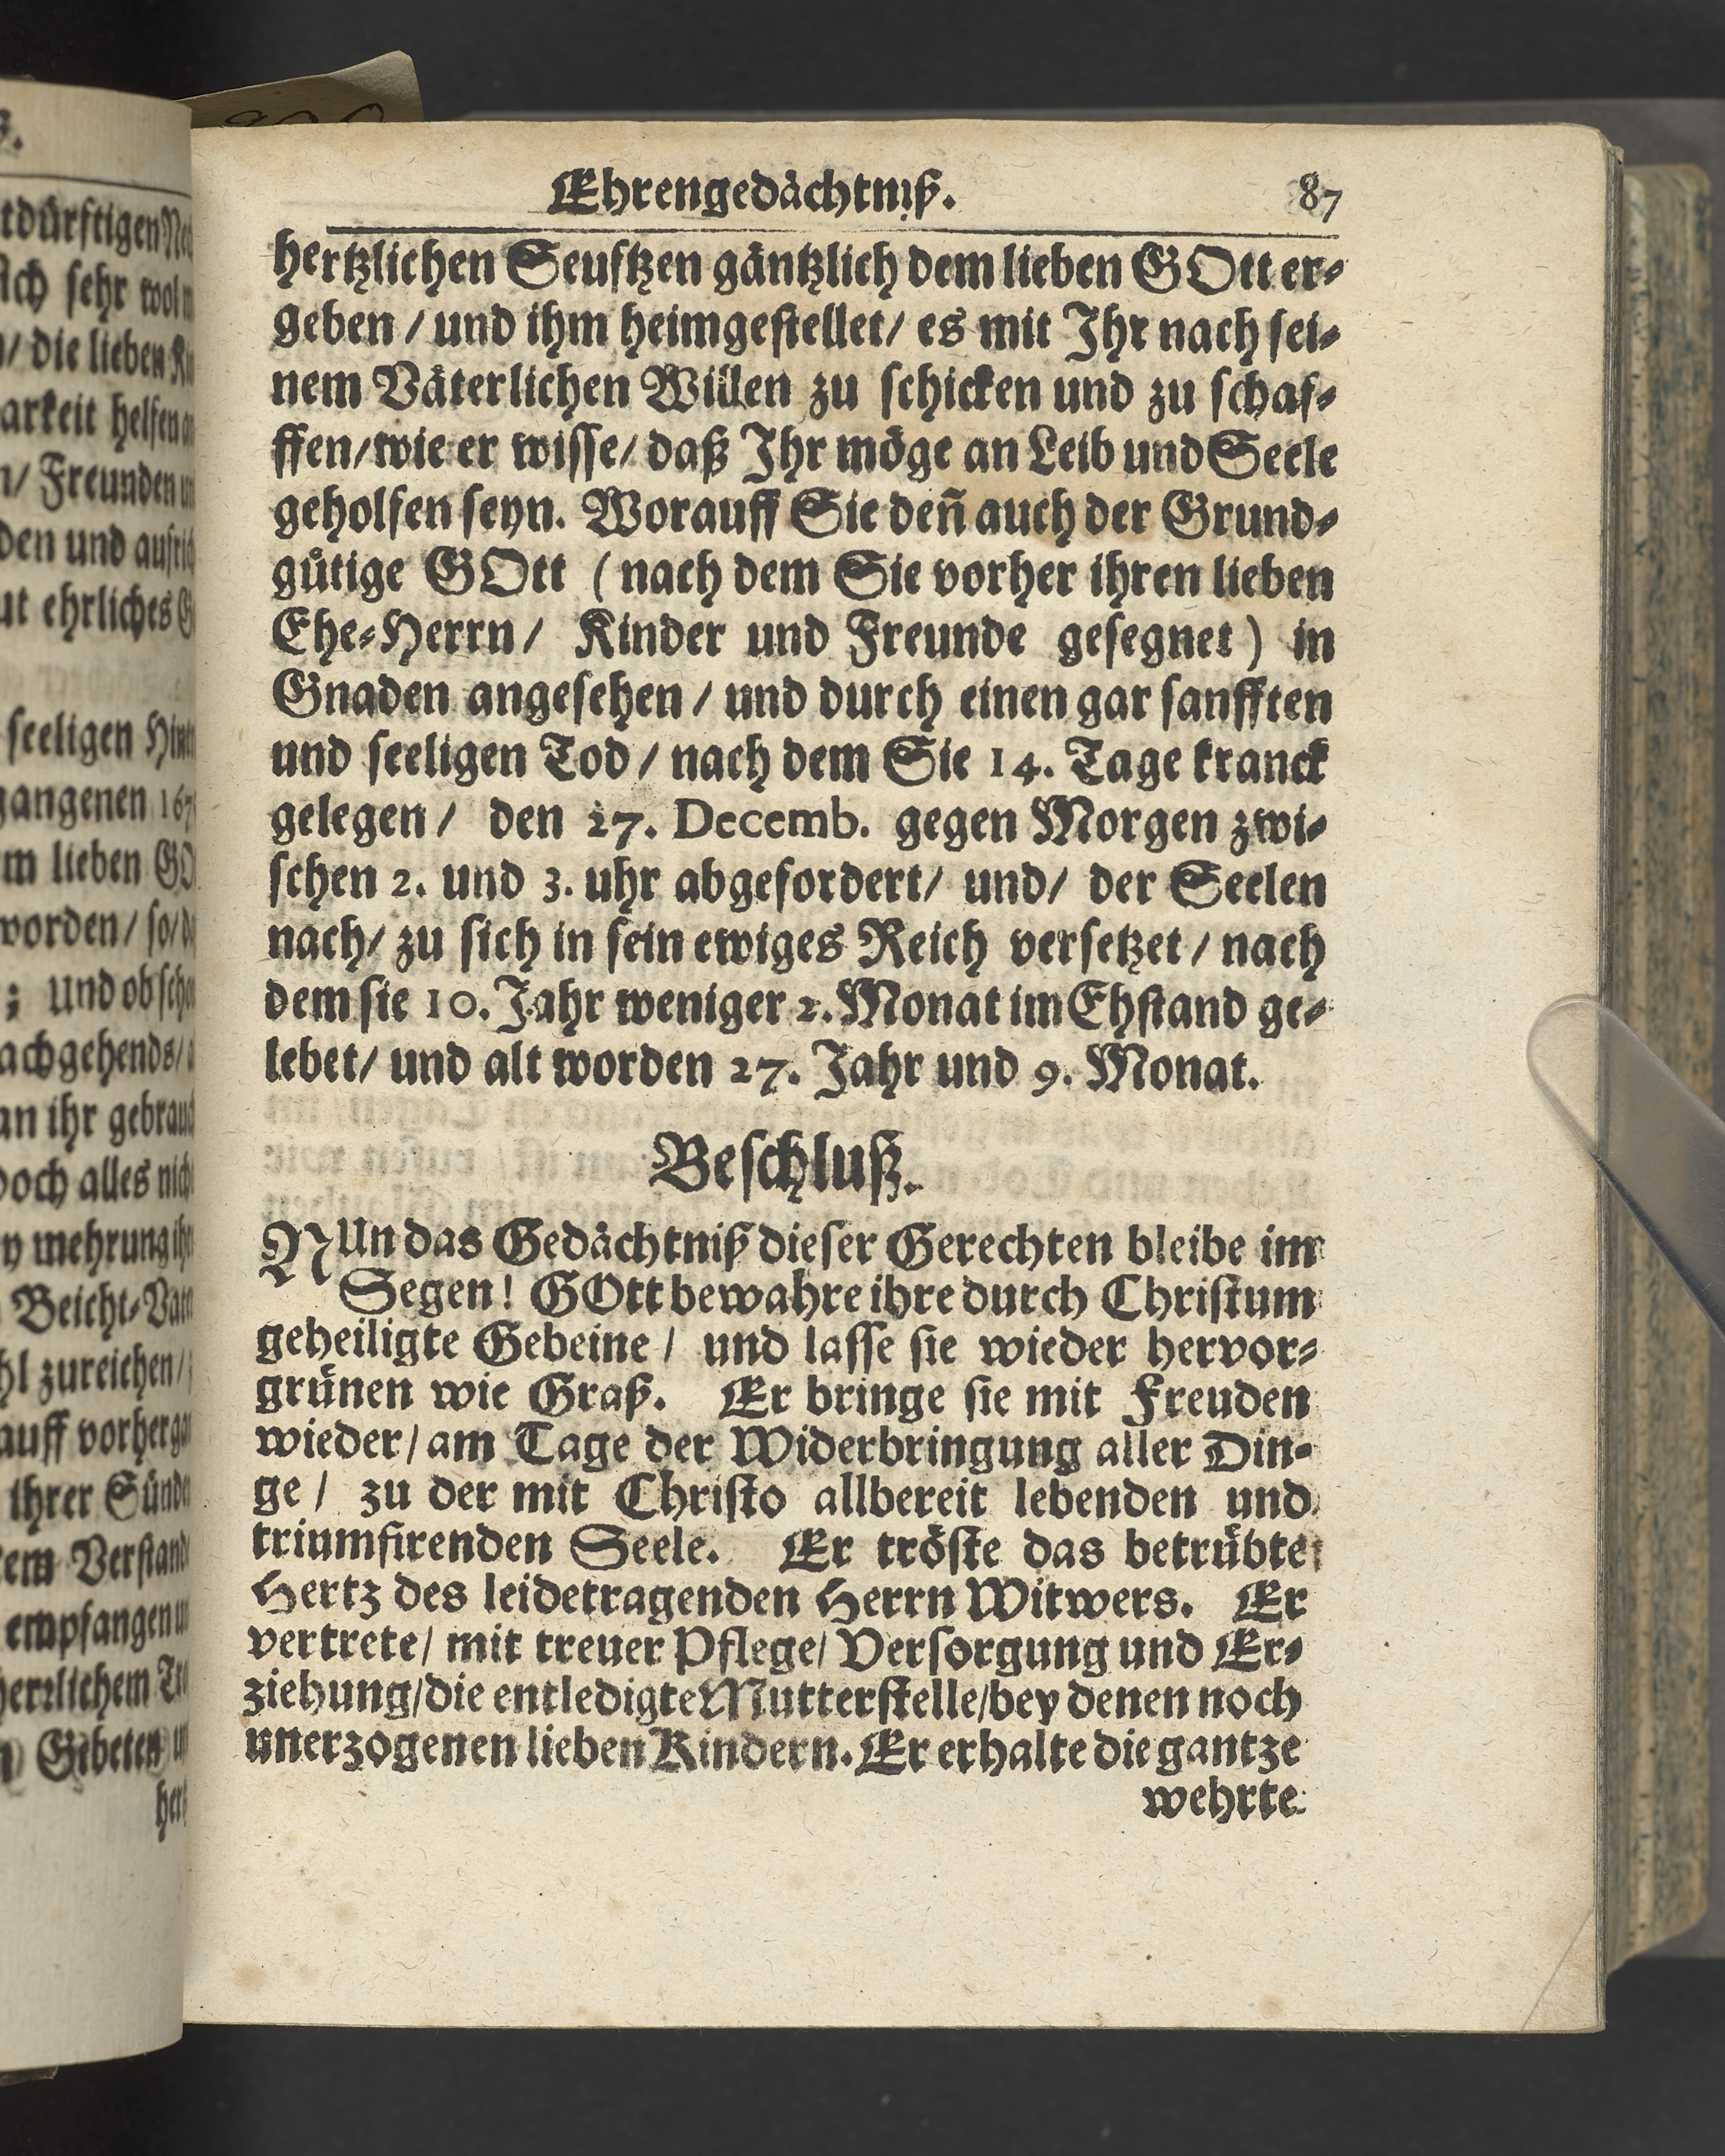 Ehrengedächtniß. 87
hertzlichen Seufftzen gäntzlich dem lieben GOtt er-
geben / und ihm heimgestellet / es mit Ihr nach sei-
nem Väterlichen Willen zu schicken und zu schaf-
ffen / wie er wisse / daß Ihr möge an Leib und Seele
geholfen seyn. Worauff Sie deñ auch der Grund-
gütige GOtt (nach dem Sie vorher ihren lieben
Ehe-Herrn / Kinder und Freunde gesegnet) in
Gnaden angesehen / und durch einen gar sanfften
und seeligen Tod / nach dem Sie 14. Tage kranck
gelegen / den 27. Decemb. gegen Morgen zwi-
schen 2. und 3. uhr abgefordert / und / der Seelen
nach / zu sich in sein ewiges Reich versetzet / nach
dem sie 10. Jahr weniger 2. Monat im Ehstand ge-
lebet / und alt worden 27. Jahr und 9. Monat.
Beschluß.
NUn das Gedächtniß dieser Gerechten bleibe im
Segen! GOtt bewahre ihre durch Christum
geheiligte Gebeine / und lasse sie wieder hervor-
grünen wie Graß. Er bringe sie mit Freuden
wieder / am Tage der Widerbringung aller Din-
ge / zu der mit Christo allbereit lebenden und
triumfirenden Seele. Er tröste das betrübte
Hertz des leidetragenden Herrn Witwers. Er
vertrete / mit treuer Pflege / Versorgung und Er-
ziehung / die entledigte Mutterstelle / bey denen noch
unerzogenen lieben Kindern. Er erhalte die gantze
wehrte